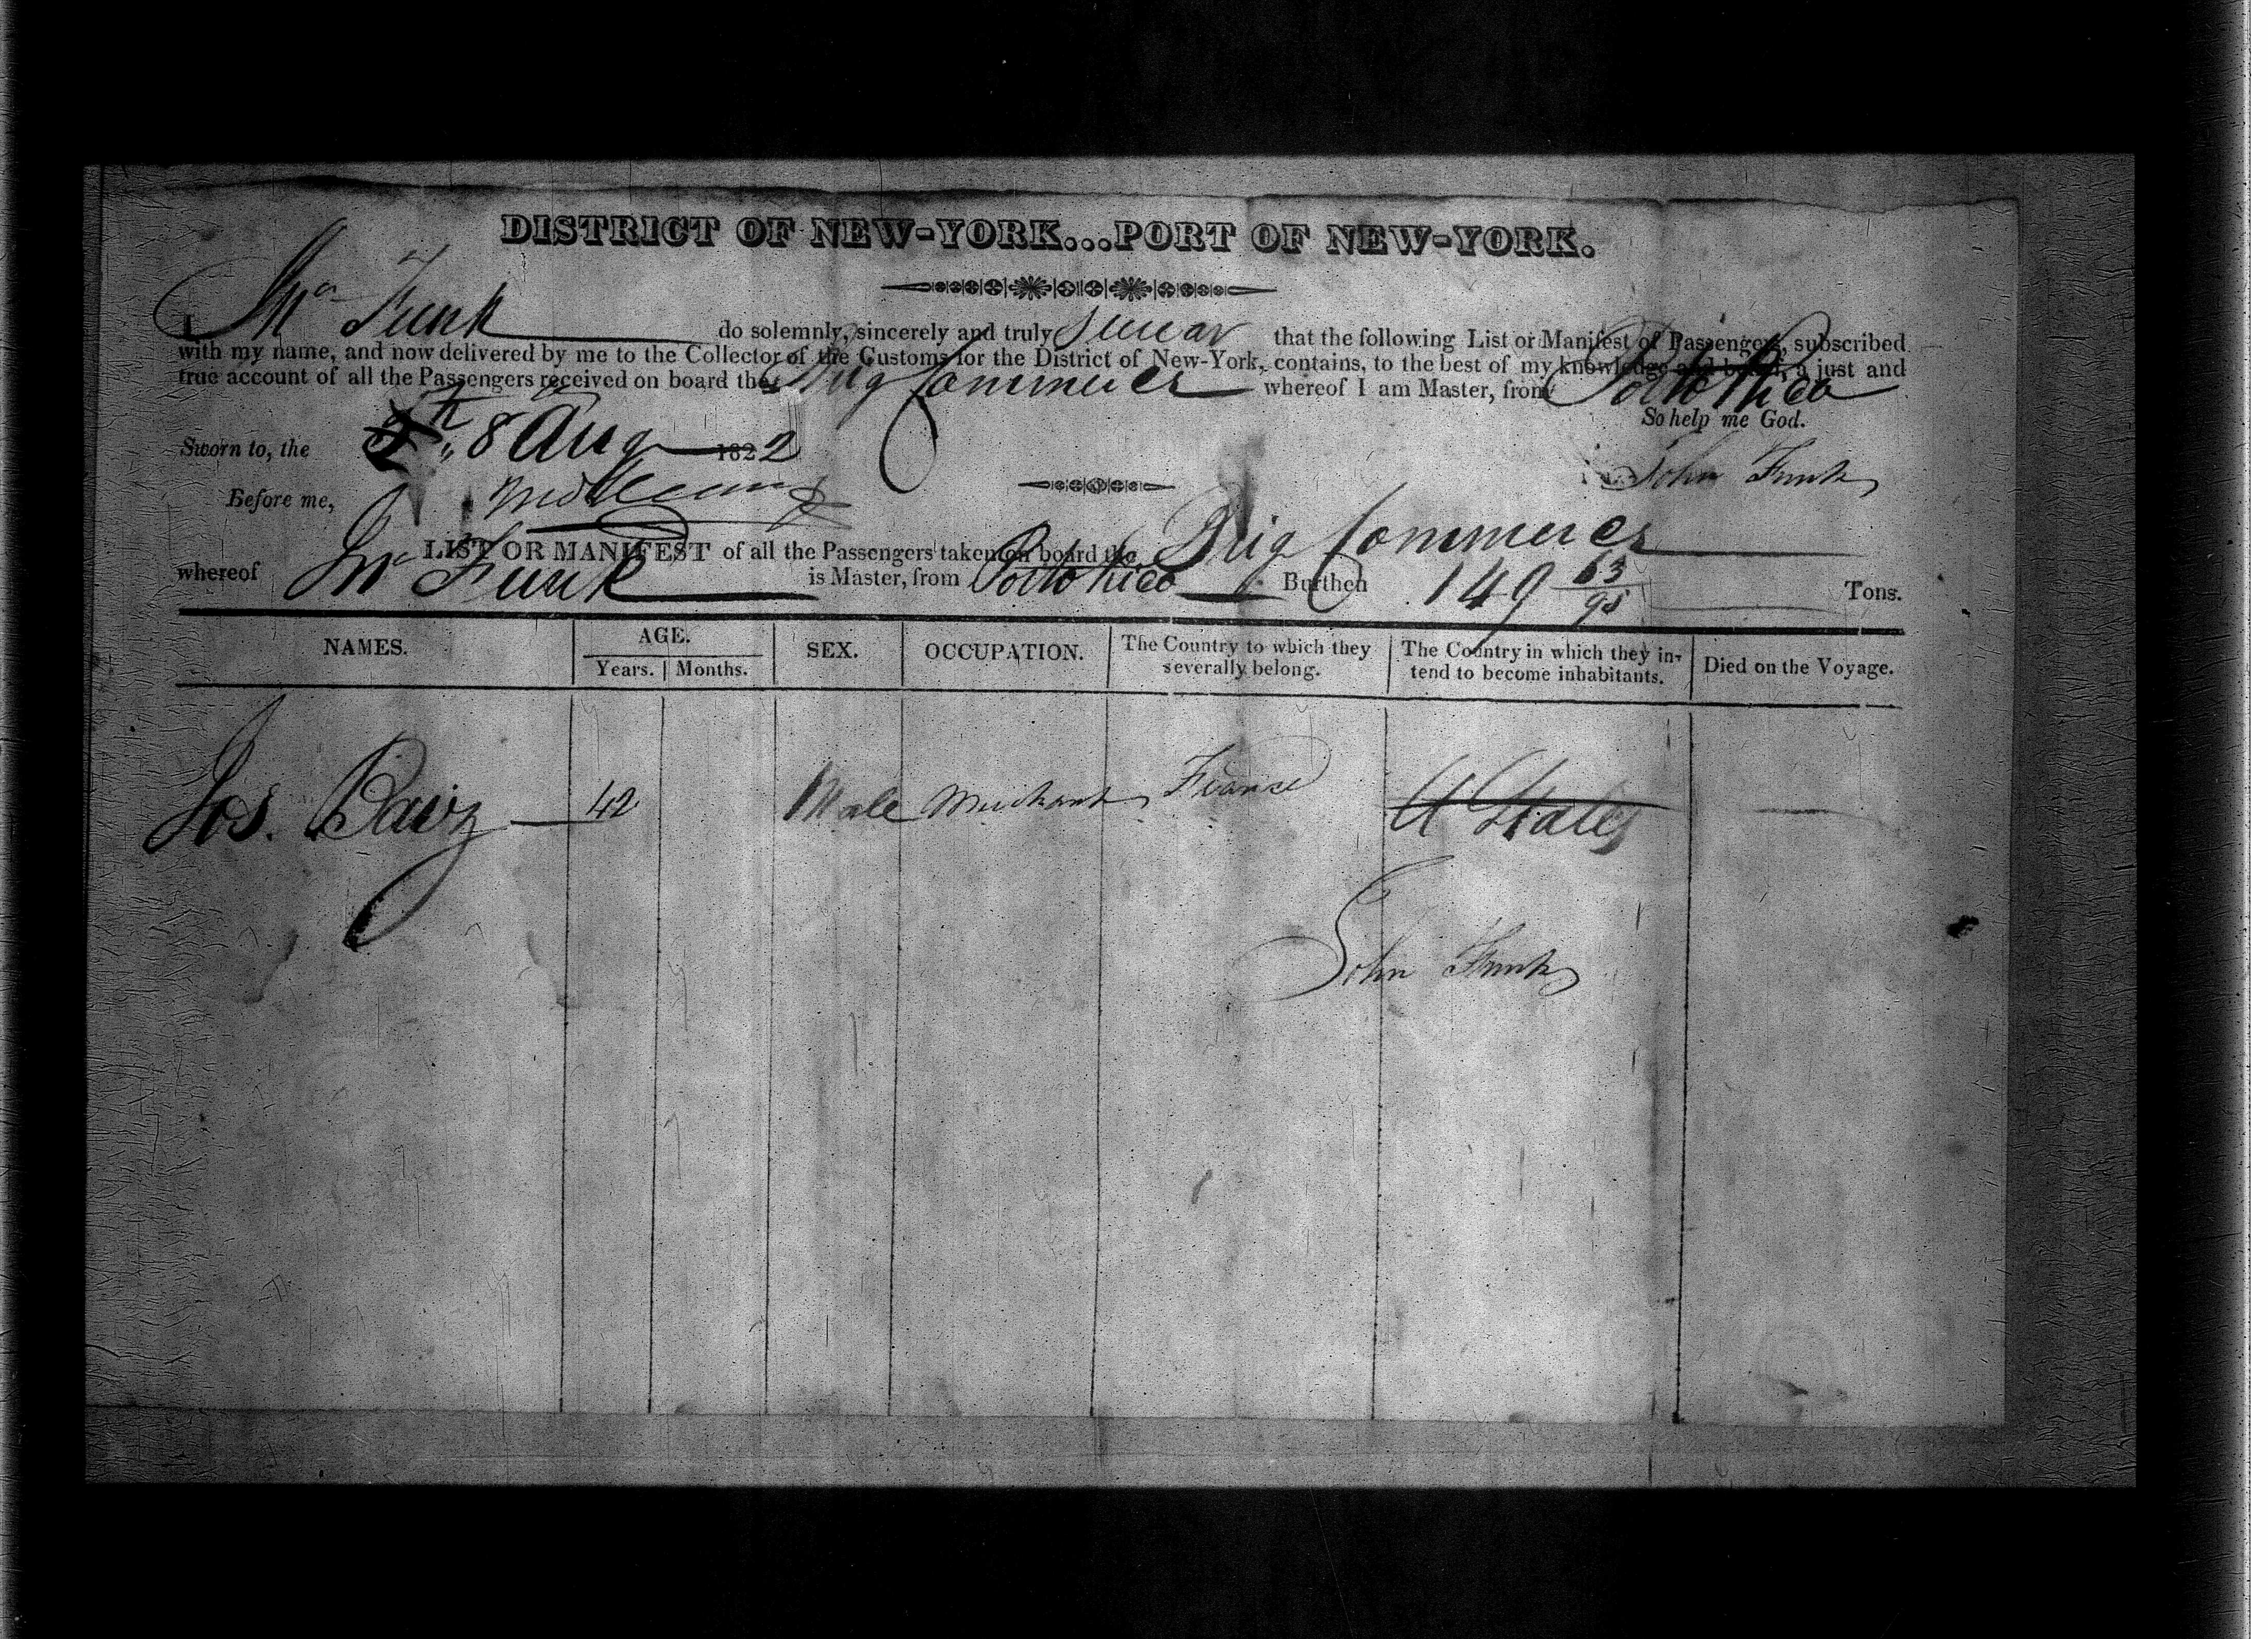 DISTRICT OF NEW-YORK...PORT OF NEW-YORK.
I Jno Funk do solemnly, sincerely and truly swear that the following List or Manifest of Passengers, subscribed
with my name, and now delivered by me to the Collector of the Customs for the District of New-York, contains, to the best of my knowledge and belief, a just and
true account of all the Passengers received on board the Brig Commerce whereof I am Master, from Porto Rico
So help me God.
Sworn to, the 8 Aug 1822
John Funk
Before me,
LIST OR MANIFEST of all the Passengers taken on board the Brig Commerce
whereof Jno Funk is Master, from Porto Rico Burthen 149 63/95 Tons.
NAMES. AGE. SEX. OCCUPATION. The Country to which they severally belong. The Country in which they intend to become inhabitants. Died on the Voyage.
Years. Months.
Jos. 42 Male Merchant France U States
John Funk